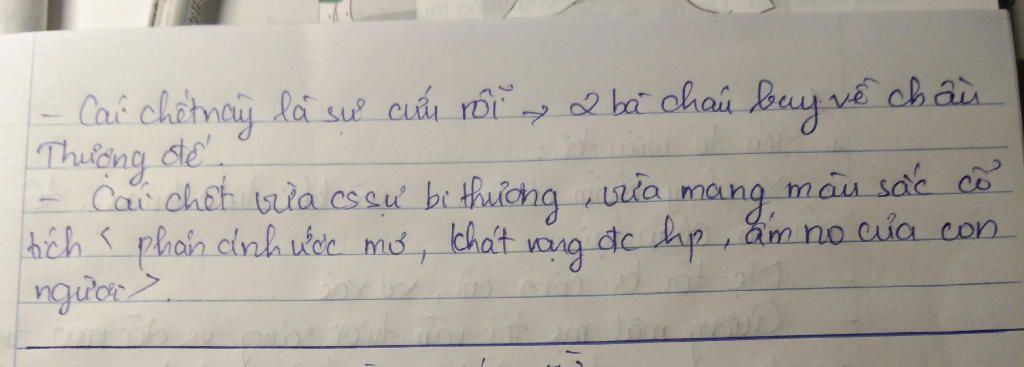 - Cái chết này là sự cứu rỗi → 2 bà cháu bay về chầu
Thượng đế.
- Cái chết vừa có sự bi thương, vừa mang màu sắc cổ
tích < phản ánh ước mơ, khát vọng đc hp, ấm no của con
người>.